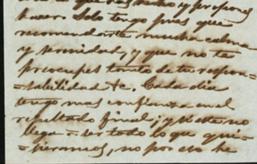 har. Solo tengo pues que
recomendarte mucha calma
y serenidad, y que no te
preocupes tanto de tu respon-
sabilidad &c. Cada dia
tengo mas confianza en el
resultado final; y si este no
llega a ser todo lo que qui-
sieramos, no por eso he